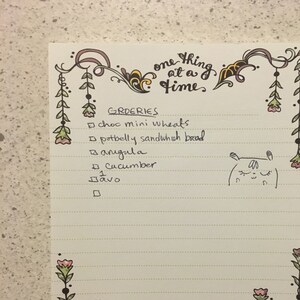 one thing
at a
time
GROERIES
choc mini wheats
potbelly sandwhich bread
arugula
cucumber
1 avo